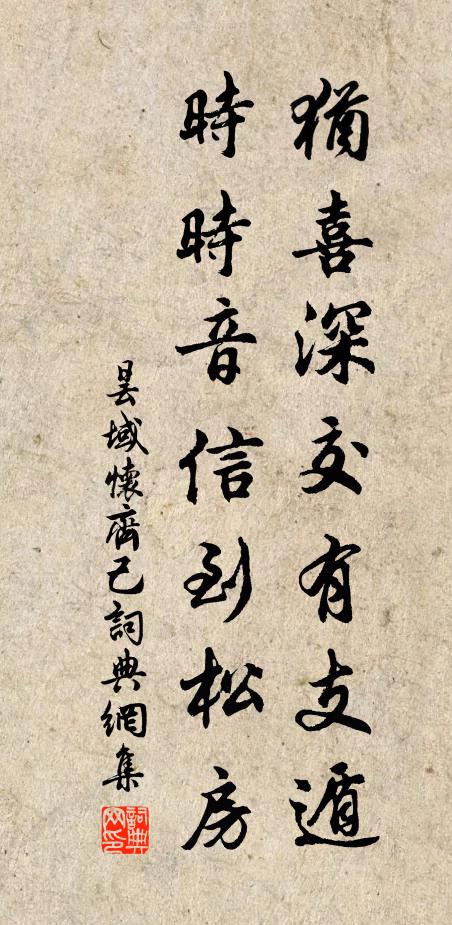 猶喜深交有支遁
時時音信到松房
昙域懷齊己詞典網集
詞典网印